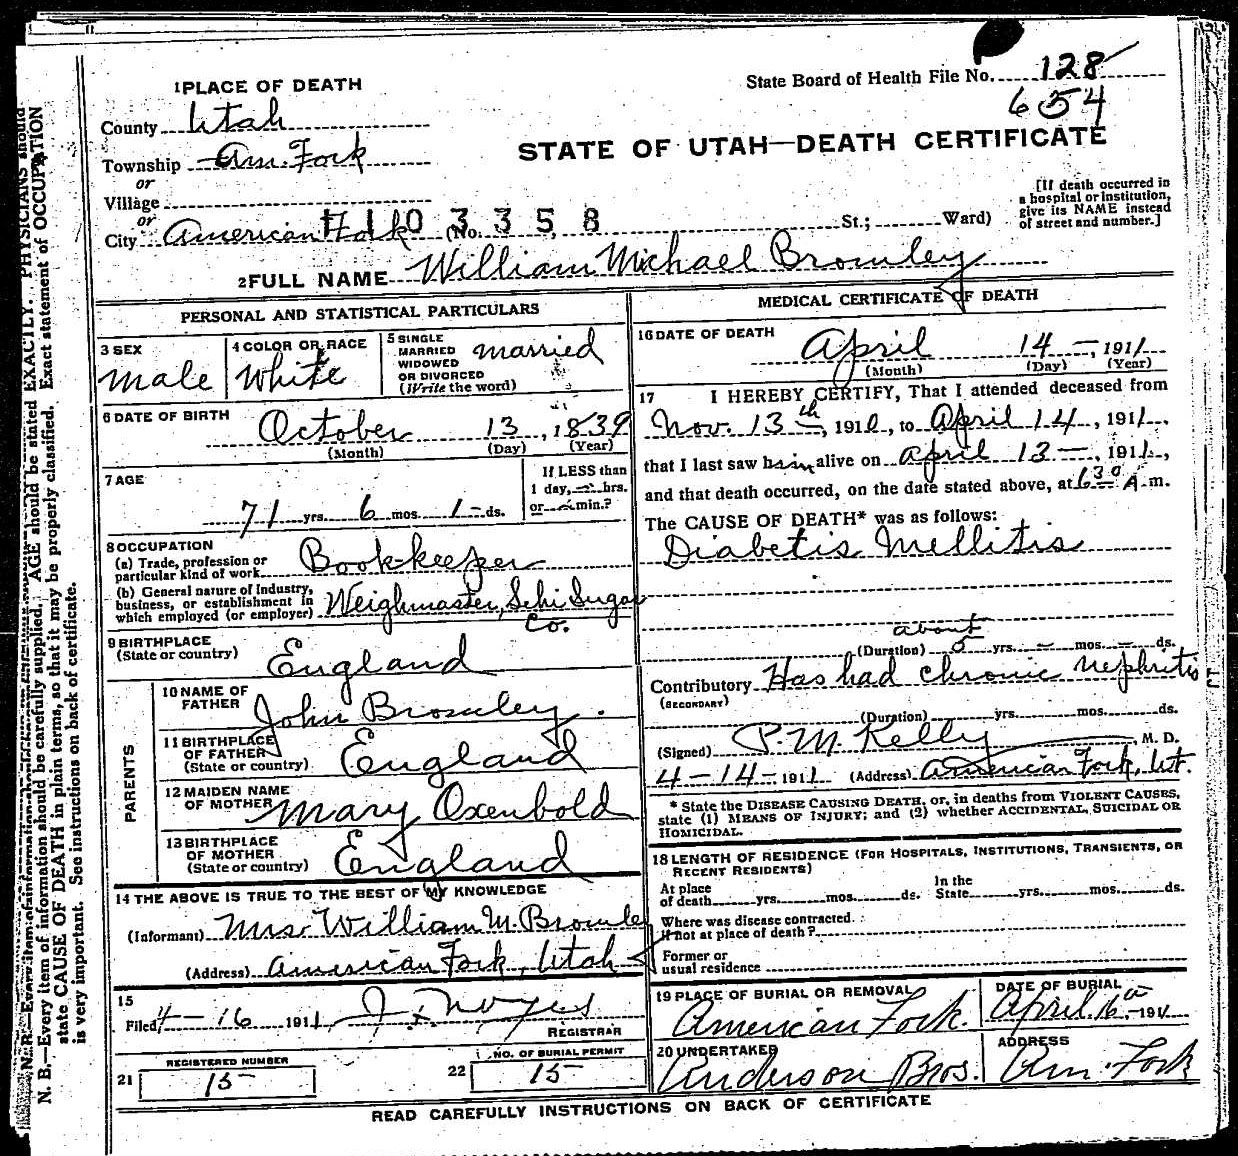 1 PLACE OF DEATH
State Board of Health File No. 128
654
County Utah
STATE OF UTAH—DEATH CERTIFICATE
Township Am. Fork
or
Village
or
City American Fork (No. St.; Ward)
H 1 0 3 3 5 8
[If death occurred in
a hospital or institution,
give its NAME instead
of street and number.]
2 FULL NAME William Michael Bromley
PERSONAL AND STATISTICAL PARTICULARS
3 SEX
Male
4 COLOR OR RACE
White
5 SINGLE
MARRIED
WIDOWED
OR DIVORCED
(Write the word)
married
6 DATE OF BIRTH
October 13, 1839
(Month) (Day) (Year)
7 AGE
71 yrs. 6 mos. 1 ds.
If LESS than
1 day, hrs.
or min.?
8 OCCUPATION
(a) Trade, profession or
particular kind of work Bookkeeper
(b) General nature of Industry,
business, or establishment in
which employed (or employer) Weighmaster, Lehi Sugar
Co.
9 BIRTHPLACE
(State or country) England
PARENTS
10 NAME OF
FATHER John Bromley.
11 BIRTHPLACE
OF FATHER
(State or country) England
12 MAIDEN NAME
OF MOTHER Mary Oxenbold
13 BIRTHPLACE
OF MOTHER
(State or country) England
14 THE ABOVE IS TRUE TO THE BEST OF MY KNOWLEDGE
(Informant) Mrs William M. Bromley
(Address) American Fork, Utah
15
Filed 4-16 1911 Noyes
REGISTRAR
REGISTERED NUMBER
21 15
NO. OF BURIAL PERMIT
22 15
MEDICAL CERTIFICATE OF DEATH
16 DATE OF DEATH
April 14 -, 1911
(Month) (Day) (Year)
17 I HEREBY CERTIFY, That I attended deceased from
Nov. 13th, 1910, to April 14, 1911,
that I last saw him alive on April 13 -, 1911,
and that death occurred, on the date stated above, at 6 30 A.m.
The CAUSE OF DEATH* was as follows:
Diabetis Mellitis
about
(Duration) 5 yrs. - mos. - ds.
Contributory Has had chronic nephritis
(SECONDARY)
(Duration) yrs. mos. ds.
(Signed) P. M Kelly, M. D.
4-14-1911 (Address) American Fork, Ut.
* State the DISEASE CAUSING DEATH, or, in deaths from VIOLENT CAUSES,
state (1) MEANS OF INJURY; and (2) whether ACCIDENTAL, SUICIDAL OR
HOMICIDAL.
18 LENGTH OF RESIDENCE (FOR HOSPITALS, INSTITUTIONS, TRANSIENTS, OR
RECENT RESIDENTS)
At place
of death yrs. mos. ds.
In the
State yrs. mos. ds.
Where was disease contracted.
If not at place of death?
Former or
usual residence
19 PLACE OF BURIAL OR REMOVAL
American Fork.
DATE OF BURIAL
April 16 - 1911
20 UNDERTAKER
Anderson Bros.
ADDRESS
Am. Fork
READ CAREFULLY INSTRUCTIONS ON BACK OF CERTIFICATE
N. B.—Every item of information should be carefully supplied. AGE should be stated EXACTLY. PHYSICIANS should
state CAUSE OF DEATH in plain terms, so that it may be properly classified. Exact statement of OCCUPATION
is very important. See instructions on back of certificate.